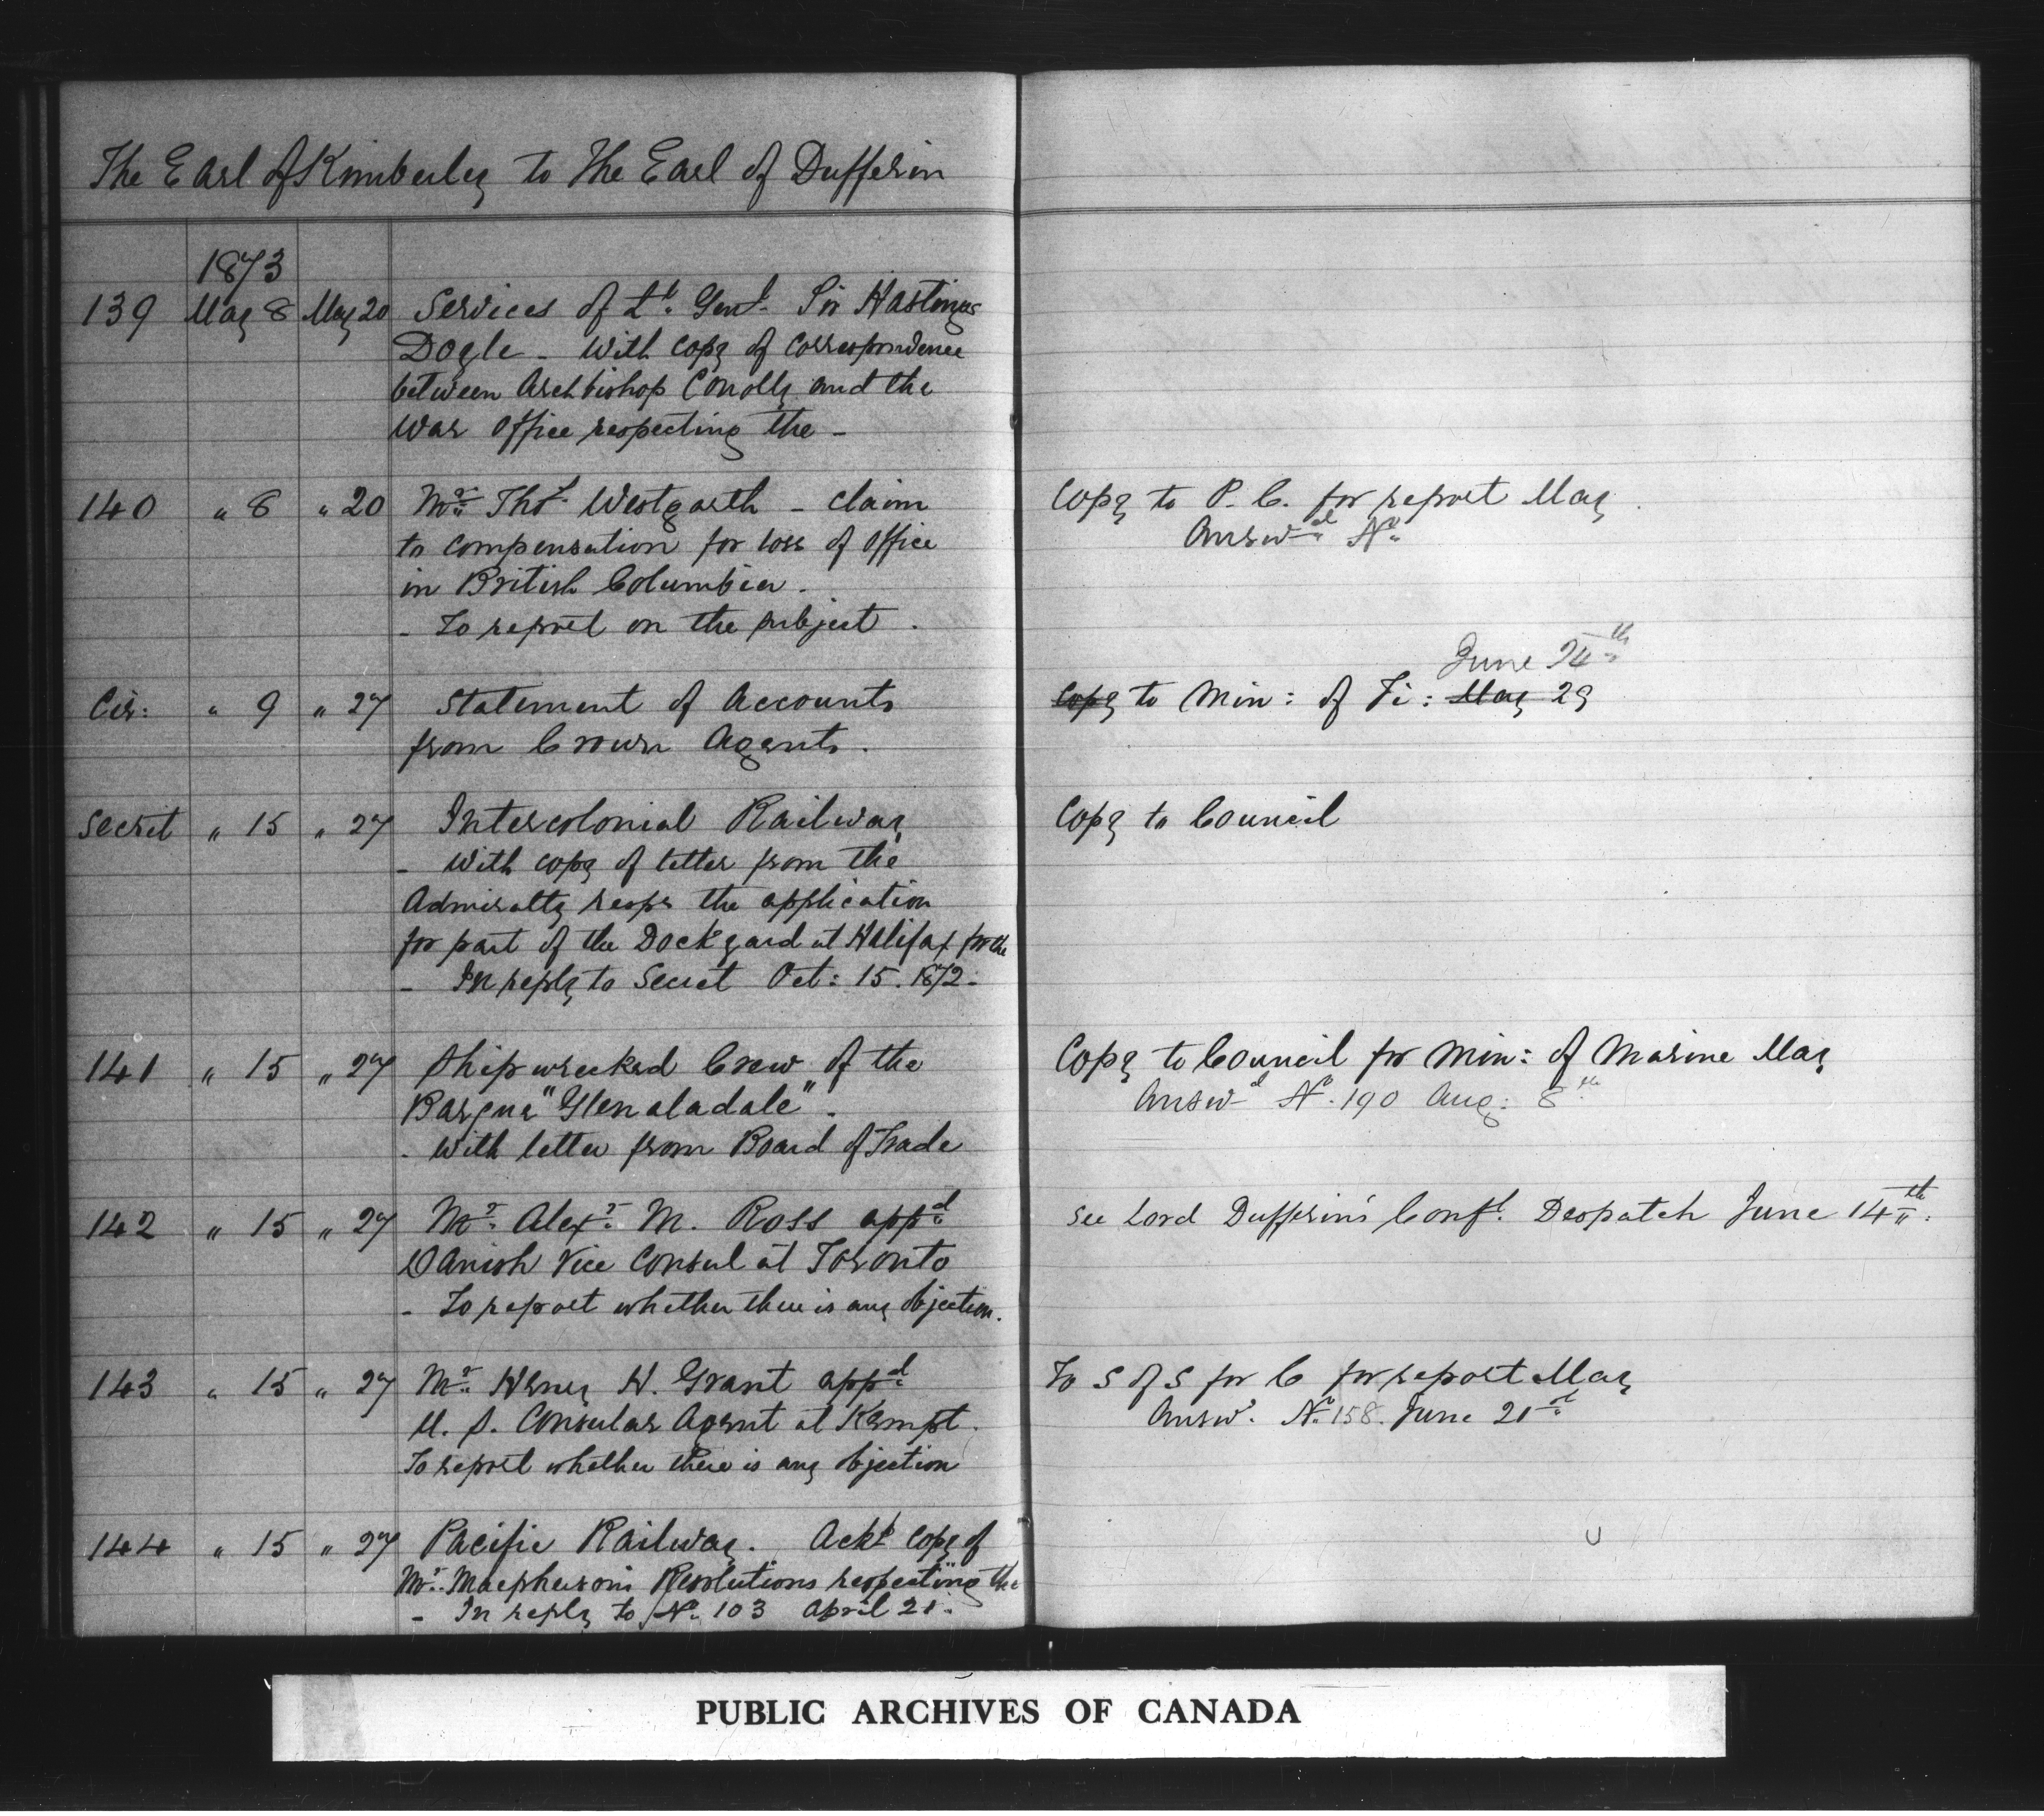 The Earl of Kimberley to The Earl of Dufferin
1873
139 May 8 May 20 Services of Lt. Genl. Sir Hastings
Doyle - With copy of correspondence
between Archbishop Conolly and the
War Office respecting the -
140 " 8 " 20 Mr. Thos. Westgarth - claim
to compensation for loss of office
in British Columbia.
- To report on the subject.
Copy to P. C. for report May
Answd. No.
Cir: " 9 " 27 Statement of Accounts
from Crown Agents.
June 24th
Copy to Min: of Fi: May 29
Secret " 15 " 27 Intercolonial Railway
- With copy of letter from the
Admiralty respg the application
for part of the Dockyard at Halifax for the
- In reply to Secret Oct: 15. 1872.
Copy to Council
141 " 15 " 27 Shipwrecked Crew of the
Barque "Glenaladale".
- With letter from Board of Trade
Copy to Council for Min: of Marine May
Answd No. 190 Aug: 8th
142 " 15 " 27 Mr. Alexr. M. Ross appd.
Danish Vice Consul at Toronto
- To report whether there is any objection.
See Lord Dufferin's Confl. Despatch June 14th.
143 " 15 " 27 Mr. Henry H. Grant appd.
U. S. Consular Agent at Kempt.
To report whether there is any objection
To S of S for C for report May
Answd. No. 158. June 21st
144 " 15 " 27 Pacific Railway. Ackg copy of
Mr. Macpherson's Resolutions respecting the
- In reply to No. 103 April 21.
PUBLIC ARCHIVES OF CANADA